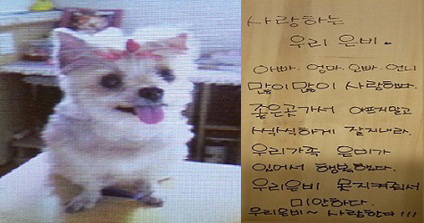 사랑하는
우리 은비.
아빠. 엄마. 오빠. 언니
많이많이 사랑한다.
좋은곳가서 아프지말고
씩씩하게 잘지내라.
우리가족 은비가
있어서 행복했다.
우리은비 못지켜줘서
미안하다.
우리은비~ 사랑한다!!!